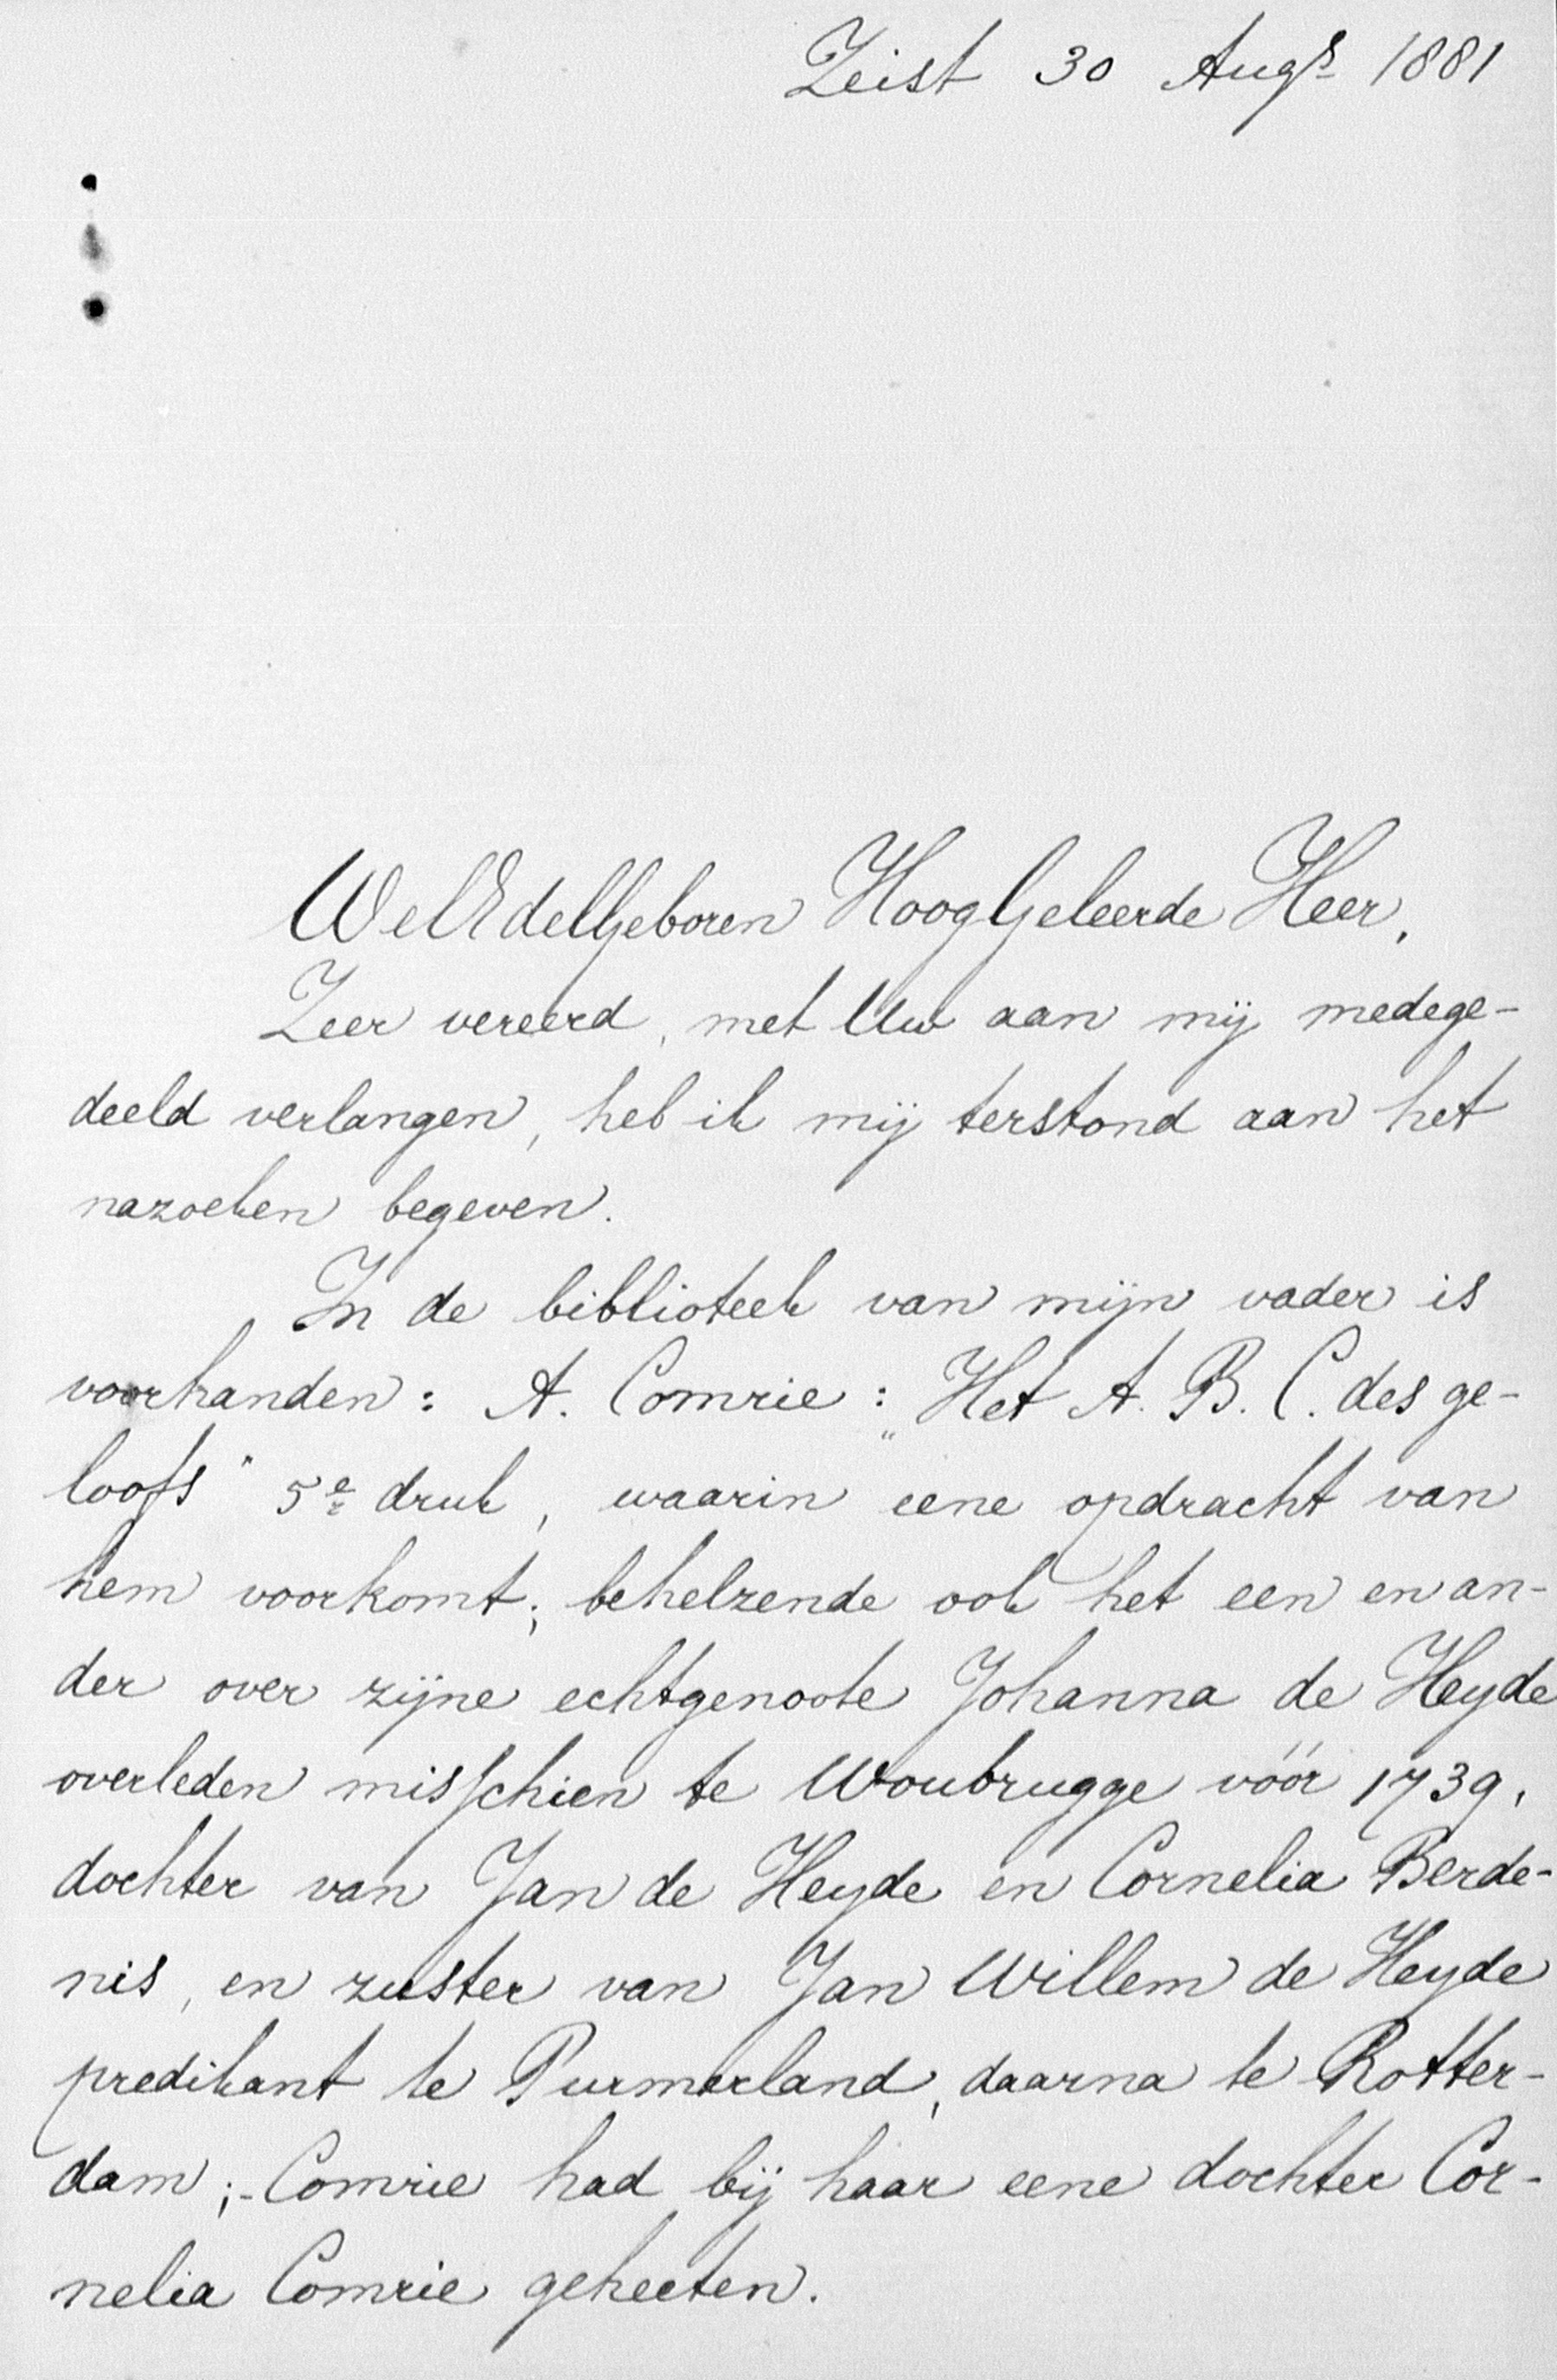 Zeist 30 Augs 1881
WelEdelGeboren HoogGeleerde Heer,
Zeer vereerd, met Uw aan mij medege-
deeld verlangen, heb ik mij terstond aan het
nazoeken begeven.
In de biblioteek van mijn vader is
voorhanden: A. Comrie: „Het A. B. C. des ge-
loofs" 5e druk, waarin eene opdracht van
hem voorkomt; behelzende ook het een en an-
der over zijne echtgenoote Johanna de Heyde
overleden misschien te Woubrugge vóór 1739,
dochter van Jan de Heyde en Cornelia Berde-
nis, en zuster van Jan Willem de Heyde
predikant te Purmerland, daarna te Rotter-
dam;- Comrie had bij haar eene dochter Cor-
nelia Comrie geheeten.